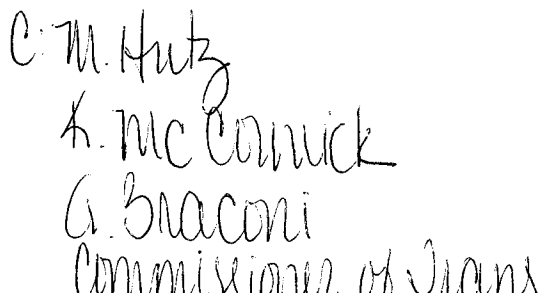 C: M. Hutz
K. McCormick
G. Braconi
Commissioner of Trans